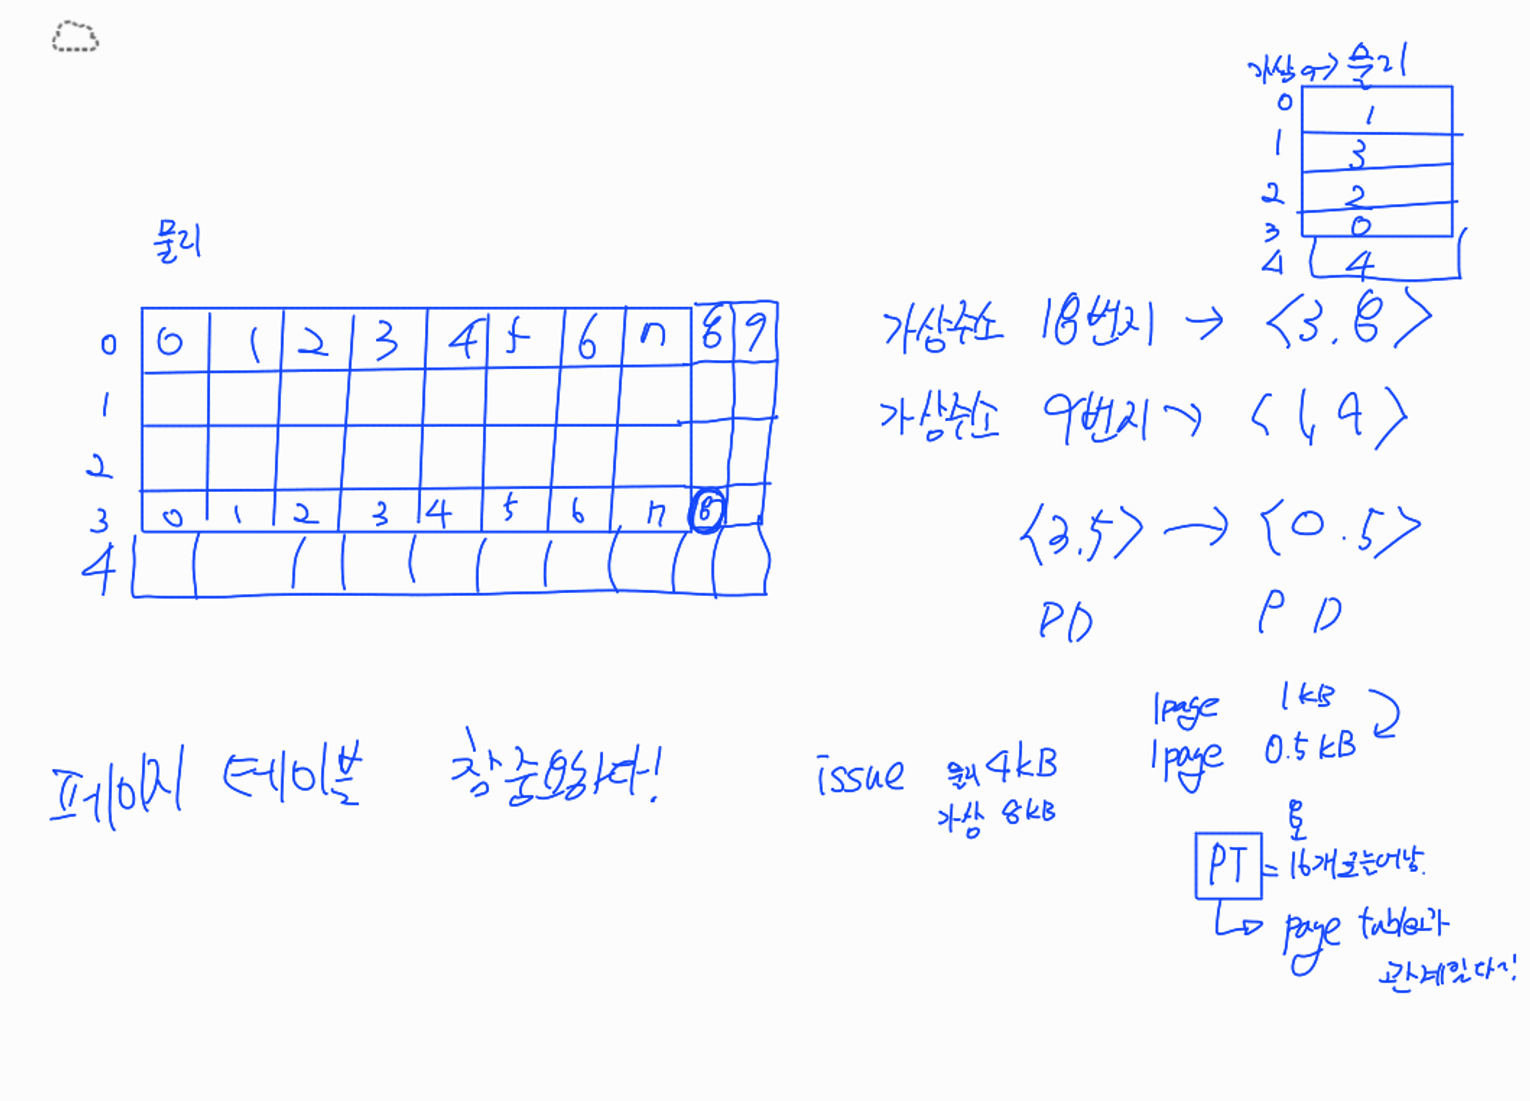 가상 → 물리
0 1
1 3
2 2
3 0
4 4
물리
0 0 1 2 3 4 5 6 7 8 9
1
2
3 0 1 2 3 4 5 6 7 8
4
가상주소 18번지 → <3.8>
가상주소 9번지 → <1,9>
<3.5> → <0.5>
PD P D
페이지 테이블 참 중요하다!
issue 물리 4kB
가상 8kB
1page 1kB
1page 0.5kB
PT = 16개로 늘어남.
page table과
관계있다!